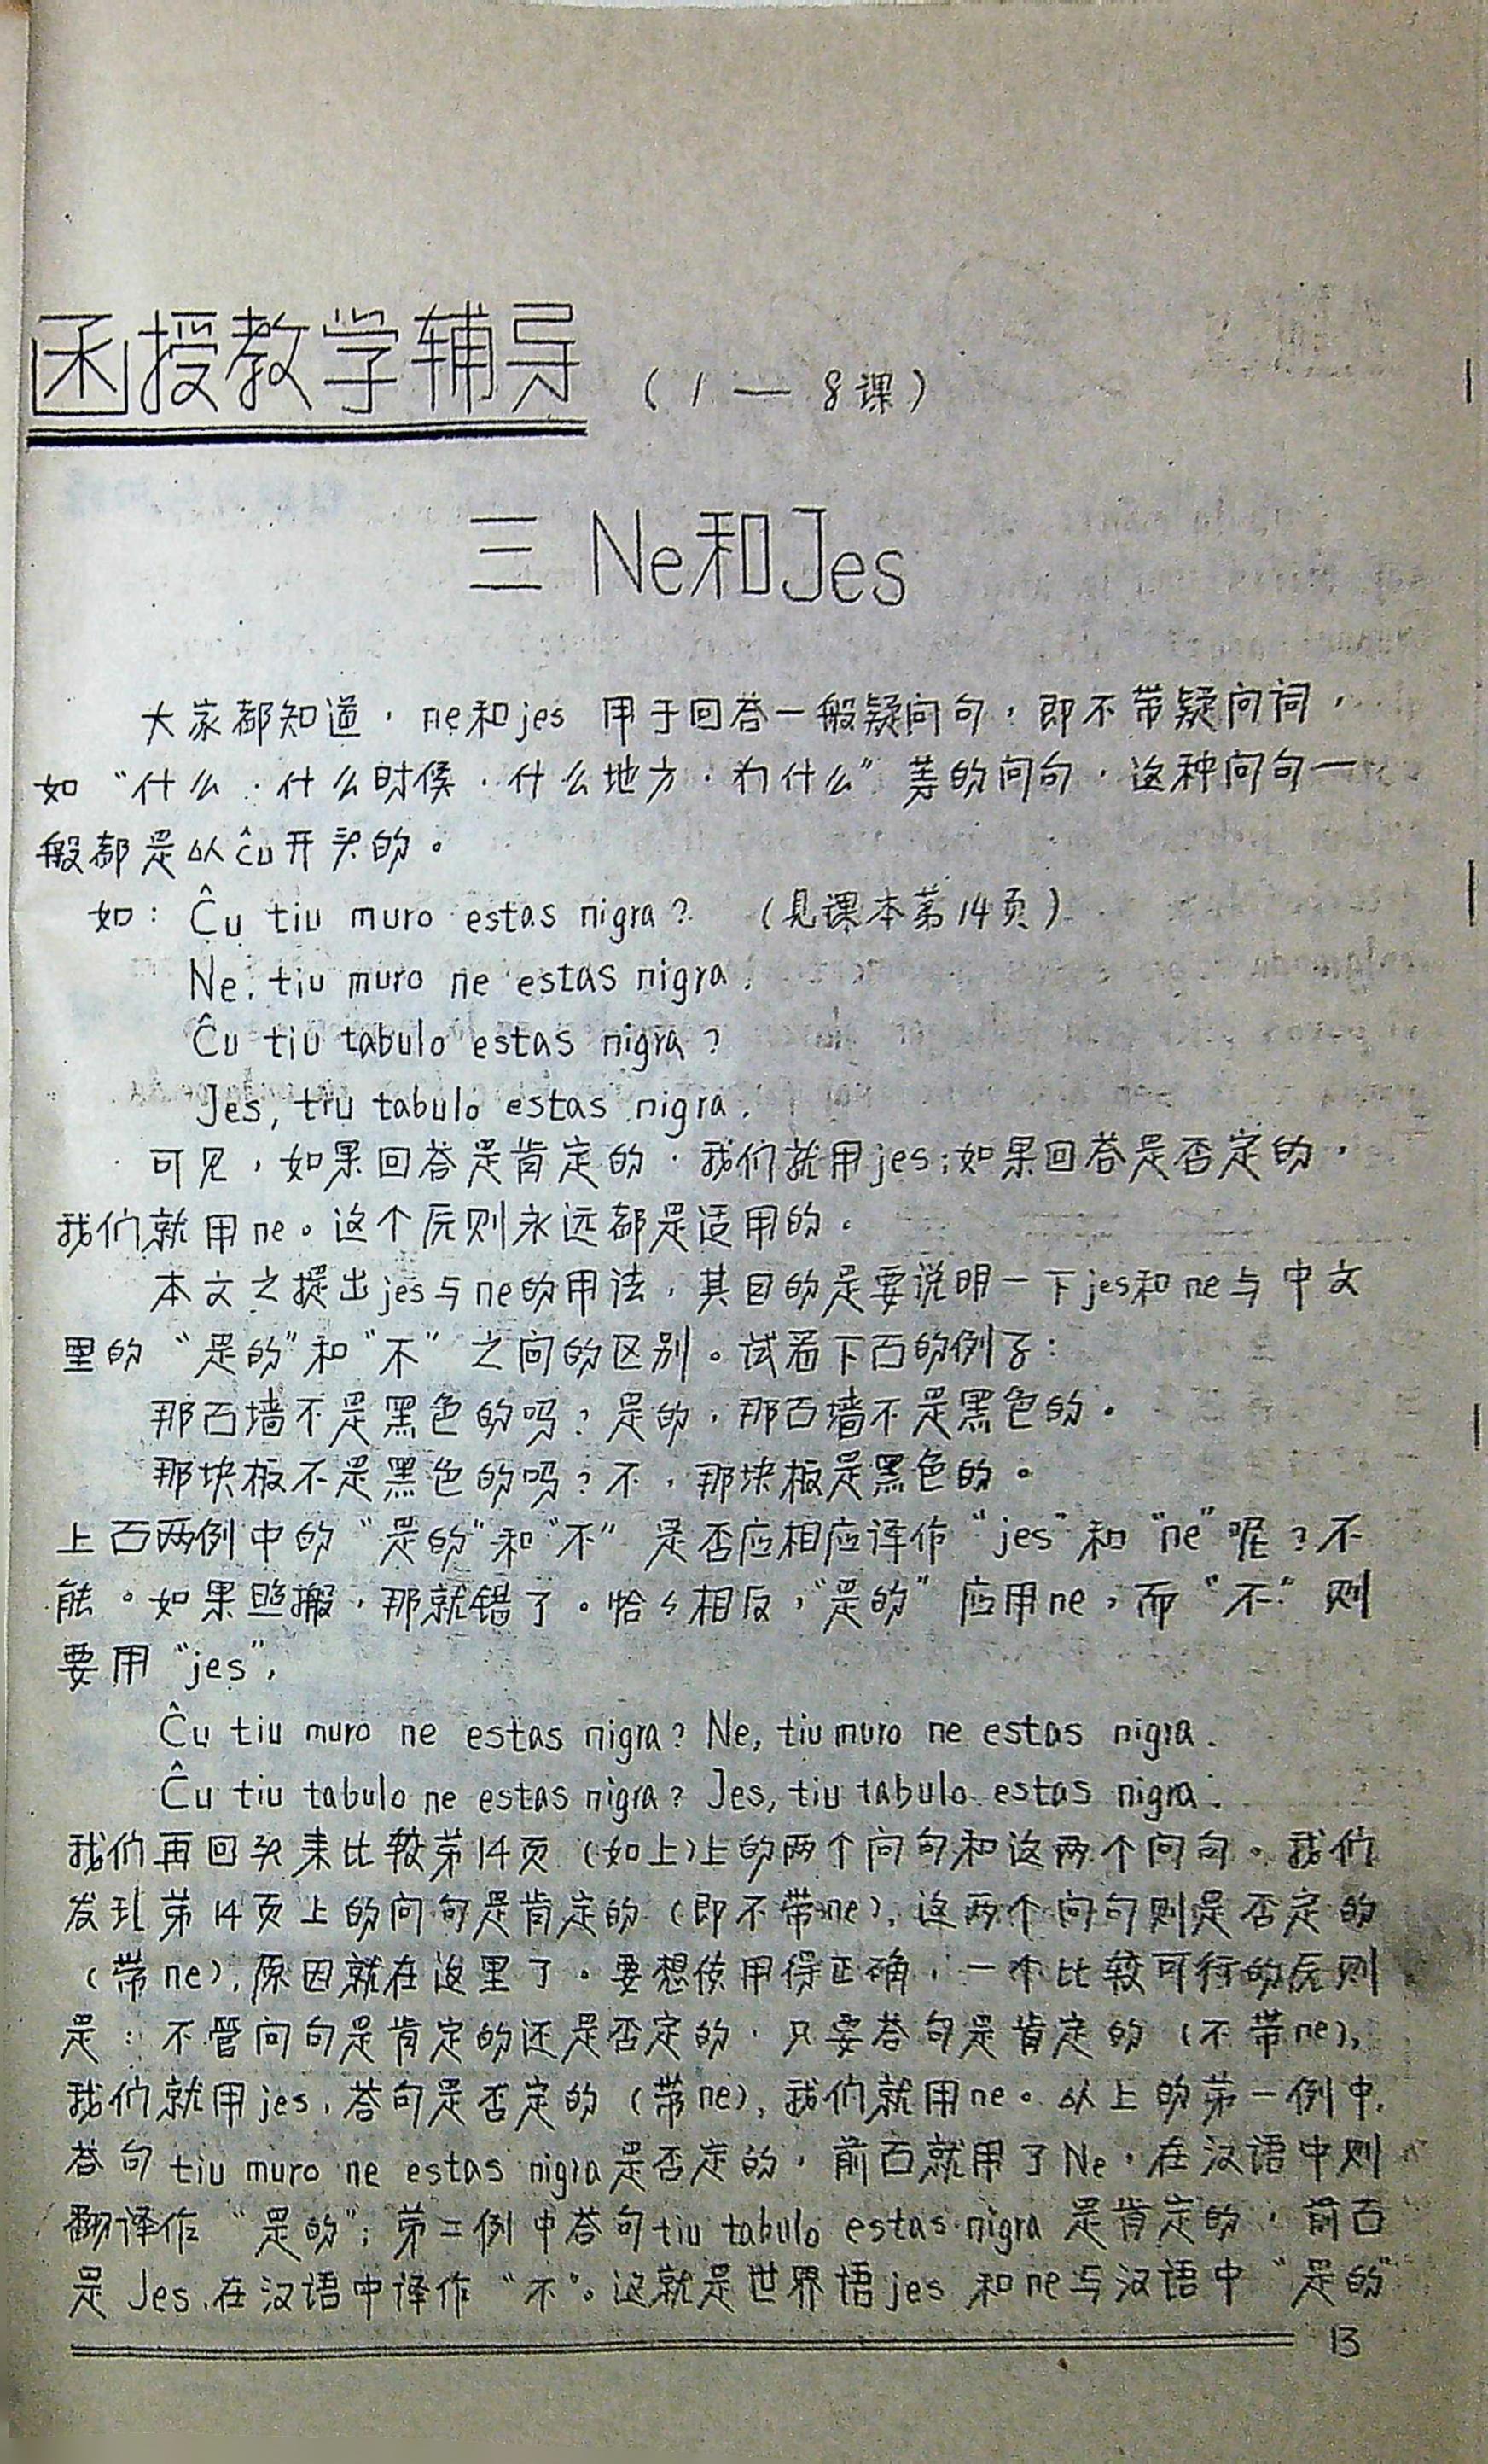 函授教学辅导（1—8课）
三 Ne和Jes
大家都知道，ne和jes 用于回答一般疑问句，即不带疑问词，
如“什么，什么时候，什么地方，为什么”等的问句，这种问句一
般都是以ĉu开头的。
如：Ĉu tiu muro estas nigra？（见课本第14页）
Ne, tiu muro ne estas nigra.
Ĉu tiu tabulo estas nigra？
Jes, tiu tabulo estas nigra.
可见，如果回答是肯定的，我们就用jes；如果回答是否定的，
我们就用ne。这个原则永远都是适用的。
本文之提出jes与ne的用法，其目的是要说明一下jes和ne与中文
里的“是的”和“不”之间的区别。试看下面的例子：
那面墙不是黑色的吗？是的，那面墙不是黑色的。
那块板不是黑色的吗？不，那块板是黑色的。
上面两例中的“是的”和“不”是否应相应译作“jes”和“ne”呢？不
能。如果照搬，那就错了。恰々相反，“是的”应用ne，而“不”则
要用“jes”，
Ĉu tiu muro ne estas nigra? Ne, tiu muro ne estas nigra.
Ĉu tiu tabulo ne estas nigra? Jes, tiu tabulo estas nigra.
我们再回头来比较第14页（如上）上的两个问句和这两个问句。我们
发现第14页上的问句是肯定的（即不带ne），这两个问句则是否定的
（带ne），原因就在这里了。要想使用得正确，一个比较可行的原则
是：不管问句是肯定的还是否定的，只要答句是肯定的（不带ne），
我们就用jes，答句是否定的（带ne），我们就用ne。以上的第一例中，
答句tiu muro ne estas nigra是否定的，前面就用了Ne，在汉语中则
翻译作“是的”；第二例中答句tiu tabulo estas nigra是肯定的，前面
是Jes，在汉语中译作“不”。这就是世界语jes 和ne与汉语中“是的”
13